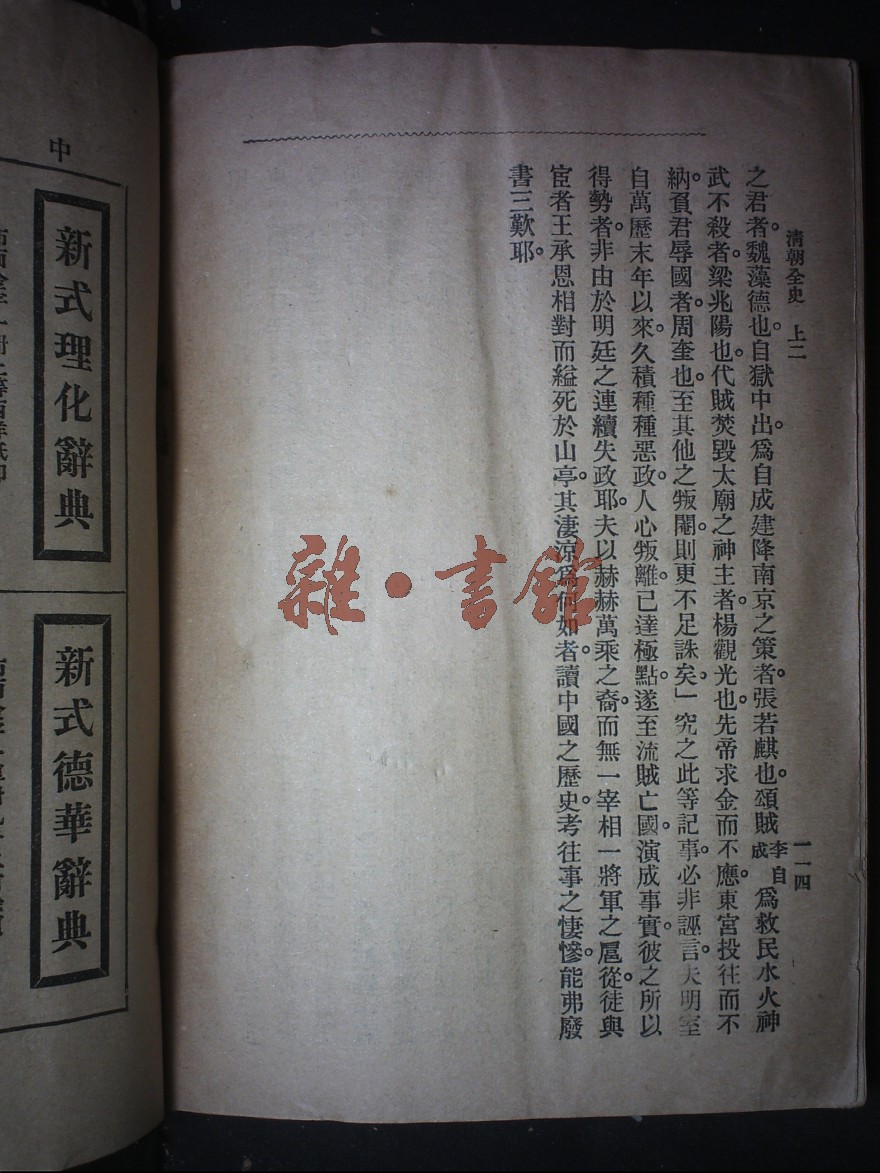 清朝全史 上二
一一四
之君者。魏藻德也。自獄中出。爲自成建降南京之策者。張若麒也。頌賊李自成爲救民水火神
武不殺者。梁兆陽也。代賊焚毀太廟之神主者。楊觀光也。先帝求金而不應。東宮投往而不
納。負君辱國者。周奎也。至其他之叛閹。則更不足誅矣。」究之此等記事。必非誣言。夫明室
自萬歷末年以來。久積種種惡政。人心叛離。已達極點。遂至流賊亡國。演成事實。彼之所以
得勢者。非由於明廷之連續失政耶。夫以赫赫萬乘之裔。而無一宰相一將軍之扈從。徒與
宦者王承恩相對而縊死於山亭。其淒涼爲何如者。讀中國之歷史。考往事之悽慘。能弗廢
書三歎耶。
中
新式理化辭典
新式德華辭典
雜·書館